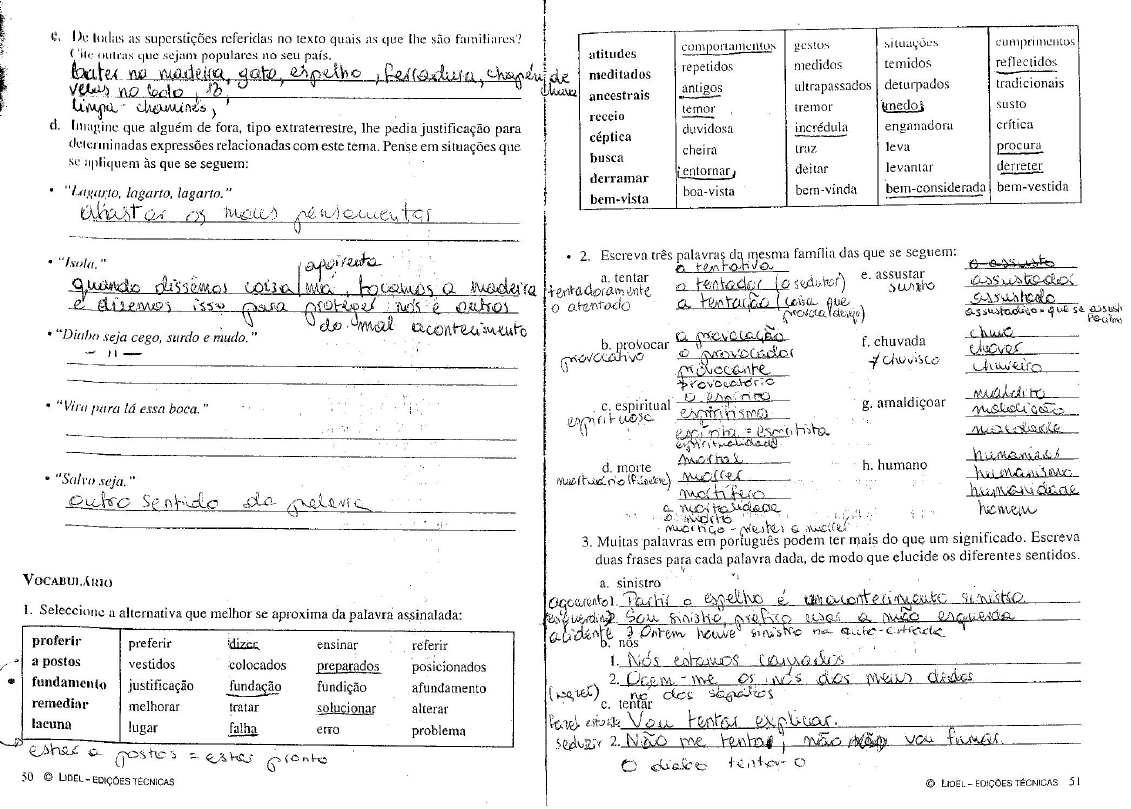 c. De todas as superstições referidas no texto quais as que lhe são familiares?
Cite outras que sejam populares no seu país.
bater na madeira, gato, espelho, ferradura, chapéu de
chuva
velas no bolo, 13
limpa-chaminés,
d. Imagine que alguém de fora, tipo extraterrestre, lhe pedia justificação para
determinadas expressões relacionadas com este tema. Pense em situações que
se apliquem às que se seguem:
• "Lagarto, lagarto, lagarto."
afastar os maus pensamentos
• "Isola."
agoirenta
quando dissemos coisa má, tocamos a madeira
e dizemos isso para proteger nós e outros
do mal acontecimento
• "Diabo seja cego, surdo e mudo."
– " –
• "Vira para lá essa boca."
• "Salvo seja."
outro sentido da palavra
VOCABULÁRIO
1. Seleccione a alternativa que melhor se aproxima da palavra assinalada:
proferir preferir dizer ensinar referir
a postos vestidos colocados preparados posicionados
fundamento justificação fundação fundição afundamento
remediar melhorar tratar solucionar alterar
lacuna lugar falha erro problema
estar a postos = estar pronto
50 © LIDEL – EDIÇÕES TÉCNICAS
atitudes comportamentos gestos situações cumprimentos
meditados repetidos medidos temidos reflectidos
ancestrais antigos ultrapassados deturpados tradicionais
receio temor tremor medo susto
céptica duvidosa incrédula enganadora crítica
busca cheira traz leva procura
derramar entornar deitar levantar derreter
bem-vista boa-vista bem-vinda bem-considerada bem-vestida
• 2. Escreva três palavras da mesma família das que se seguem:
a. tentar
a tentativa
tentadoramente
o tentador (o sedutor)
o atentado
a tentação (coisa que
provoca desejo)
e. assustar
o assusto
susto
assustador
assustado
assustadiço = que se assusta
b. provocar
a provocação
provocativo
o provocador
provocante
provocatório
f. chuvada
chuva
chuvisco
chover
chuveiro
c. espiritual
o espírito
espirituosa
espiritismo
espírita = espiritista
espiritualidade
g. amaldiçoar
maldito
maldição
maldade
d. morte
mortal
mortuário
morrer
mortífero
a mortalidade
o morto
moriço - prestes a morrer
h. humano
humanizar
humanismo
humanidade
homem
3. Muitas palavras em português podem ter mais do que um significado. Escreva
duas frases para cada palavra dada, de modo que elucide os diferentes sentidos.
a. sinistro
agoirento 1. Partir o espelho é um acontecimento sinistro
esquerdino 2. Sou sinistro, prefiro usar a mão esquerda
acidente 3 Ontem houve sinistro na auto-estrada
b. nós
1. Nós estamos cansados
2. Doem-me os nós dos meus dedos
no dos sapatos
c. tentar
Vou tentar explicar.
seduzir 2. Não me tenta, não vou fumar.
O diabo tentar-o
© LIDEL – EDIÇÕES TÉCNICAS 51